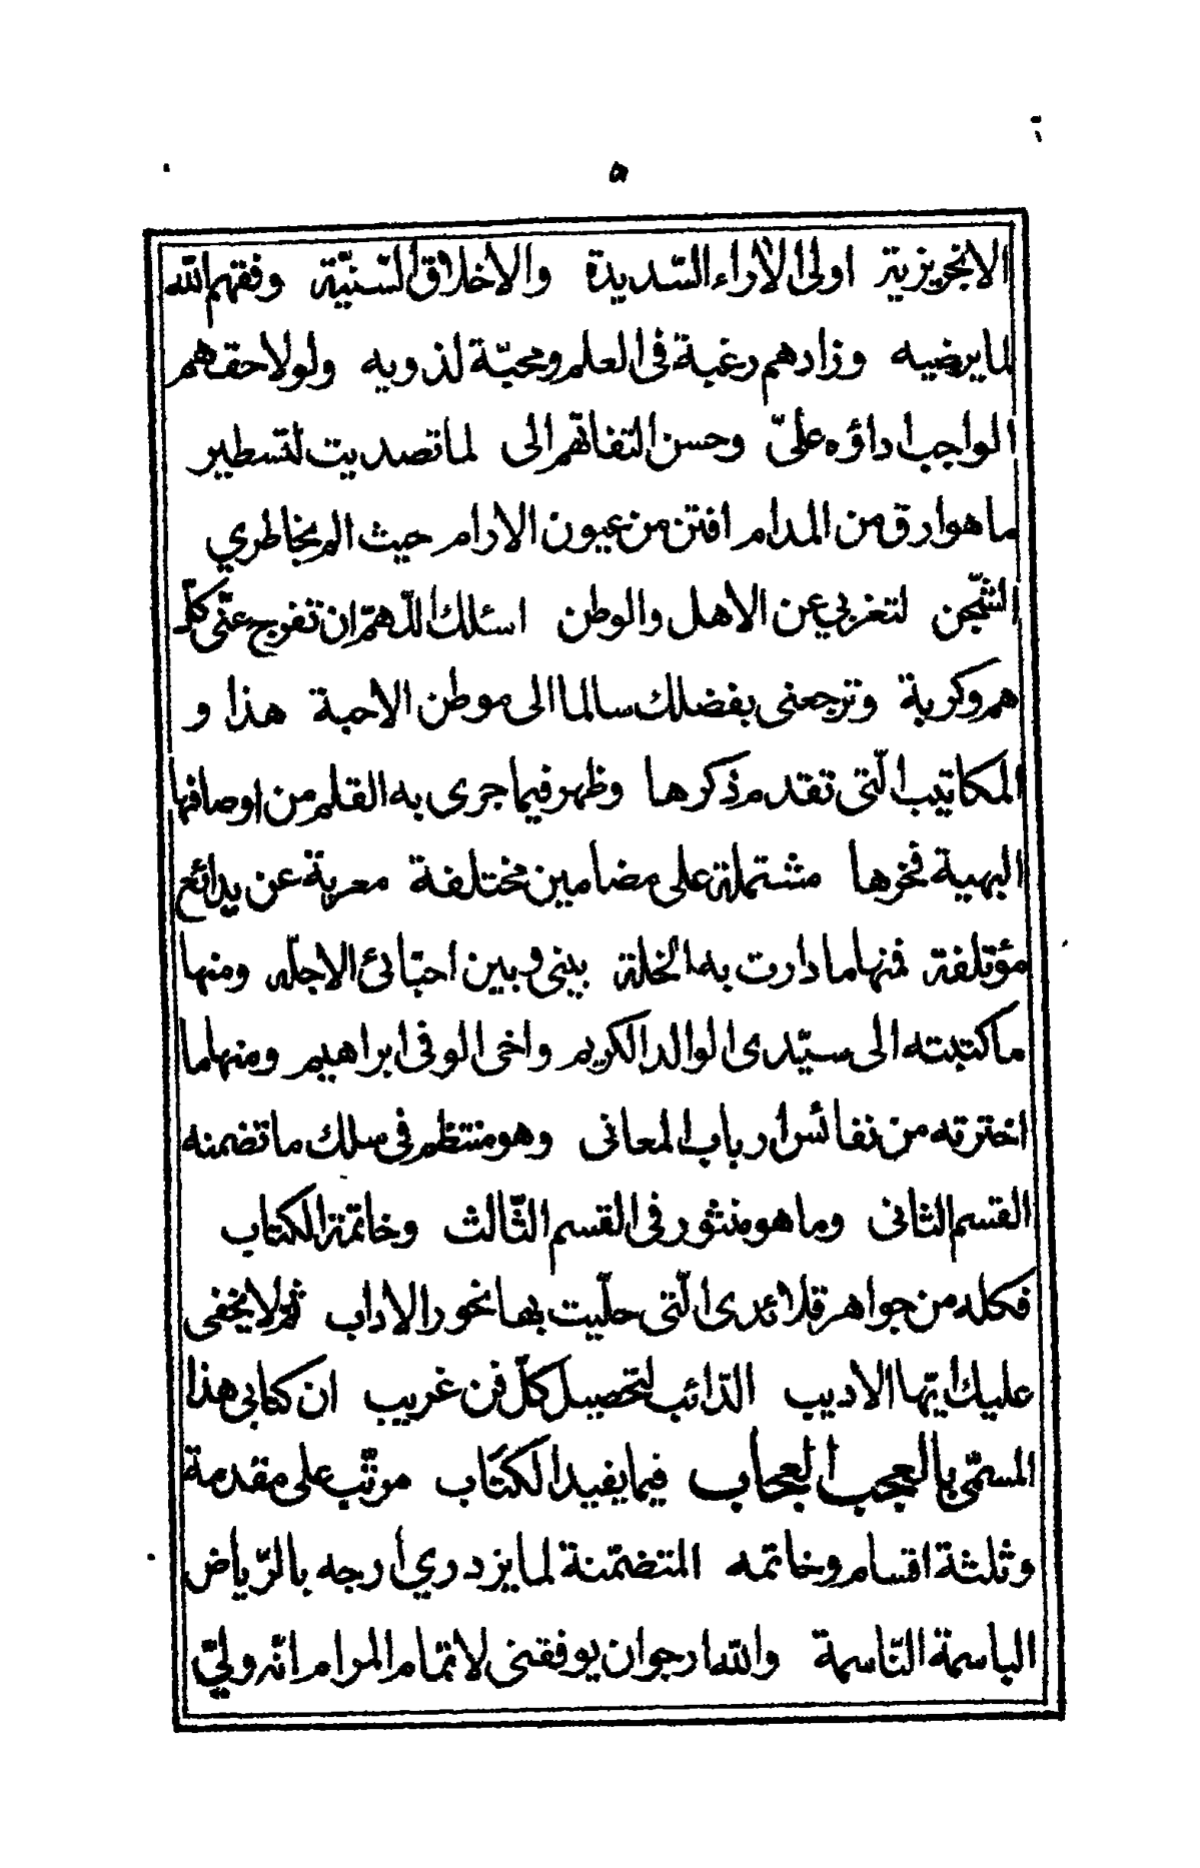 ٥
الانجريزية اولى الآراء السّديدة والاخلاق السّنيّة وفقهم اللّه
لما يرضيه وزادهم رغبة فى العلم ومحبّة لذويه ولولا حقهم
الواجب اداؤه علىّ وحسن التفاتهم الى لما تصديت لتسطير
ما هو ارق من المدام افتن من عيون الارام حيث الم بخاطري
الشّجن لتغربي عن الاهل والوطن اسئلك اللّهمّ ان تفرج عنّى كلّ
هم وكربة وترجعنى بفضلك سالما الى موطن الاحبة هذا و
المكاتيب الّتى تقدم ذكرها وظهر فيما جرى به القلم من اوصافها
البهية فخرها مشتملة على مضامين مختلفة معربة عن بدائع
مؤتلفة فمنها ما دارت به الخلة بينى وبين احبّائ الاجلّه ومنها
ما كتبته الى سيّدى الوالد الكريم واخى الوفى ابراهيم ومنها ما
اخترته من نفائس ارباب المعانى وهو منتظم فى سلك ما تضمنه
القسم الثانى وما هو منثور فى القسم الثّالث وخاتمة الكتاب
فكله من جواهر قلائدى الّتى حلّيت بها نحور الاداب ثم لا يخفى
عليك ايّها الاديب الدّائب لتحصيل كلّ فن غريب ان كتابى هذا
المسمّى بالعجب العجاب فيما يفيد الكتّاب مرتّب على مقدمة
وثلثة اقسام وخاتمه المتضمّنة لما يزدري ارجه بالرّياض
الباسمة النّاسمة واللّه ارجو ان يوفقنى لاتمام المرام انّه وليّ